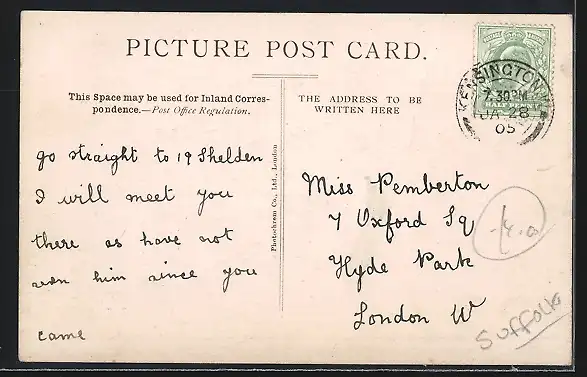 PICTURE POST CARD.
This Space may be used for Inland Corres-
pondence.—Post Office Regulation.
THE ADDRESS TO BE
WRITTEN HERE
KENSINGTON
7.30PM
JA 28
05
go straight to 19 Shelden
I will meet you
there as have not
seen him since you
came
Photochrom Co., Ltd., London
Miss Pemberton
7 Oxford Sq
Hyde Park
London W
Suffolk